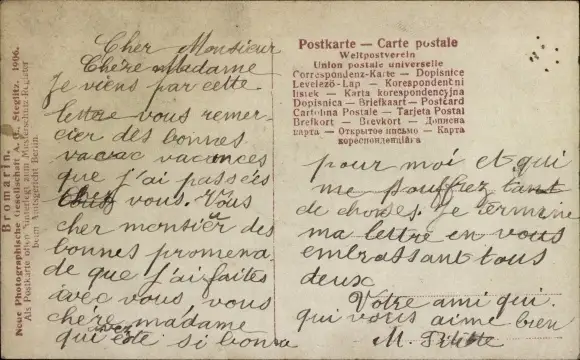 Bromarin.
Neue Photographische Gesellschaft A. G. Steglitz. 1906.
Als Postkarte ohne Unterlage zum Musterschutz-Register
beim Amtsgericht Berlin.
Cher Monsieur
Chère Madame
Je viens par cette
lettre vous remer-
cier des bonnes
vacances
que j'ai passées
chez vous. Vous
cher monsieur des
bonnes promena-
de que j'ai faites
avec vous, vous
chère madame
qui avez été si bonne
Postkarte — Carte postale
Weltpostverein
Union postale universelle
Correspondenz-Karte — Dopisnice
Levelező-Lap — Korespondentní
lístek — Karta korespondencyjna
Dopisnica — Briefkaart — Postcard
Cartolina Postale — Tarjeta Postal
Brefkort — Brevkort — Дописна
карта — Открытое письмо — Карта
корреспонденціи
pour moi et qui
me souffrez tant
de choses. Je termine
ma lettre en vous
embrassant tous
deux
Votre ami qui.
qui vous aime bien
M.